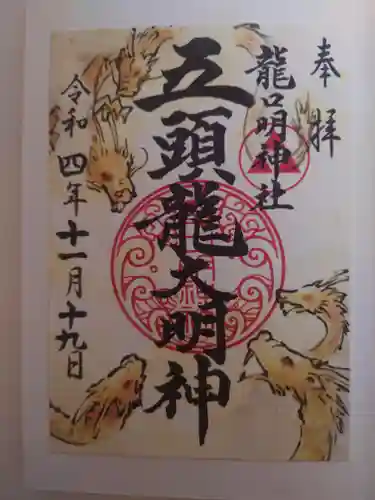 奉拝
龍口明神社
五頭龍大明神
令和四年十一月十九日